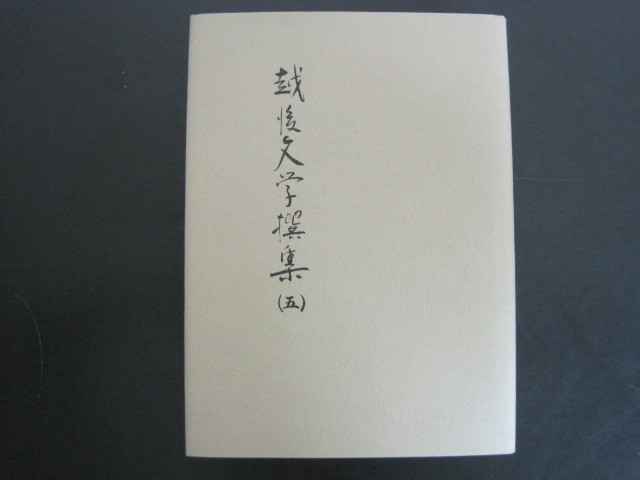 越後文学撰集(五)